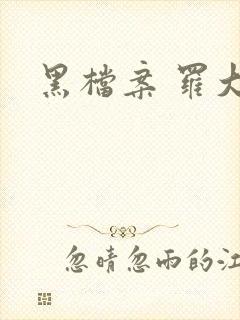 黑檔案 羅大
忽晴忽雨的江